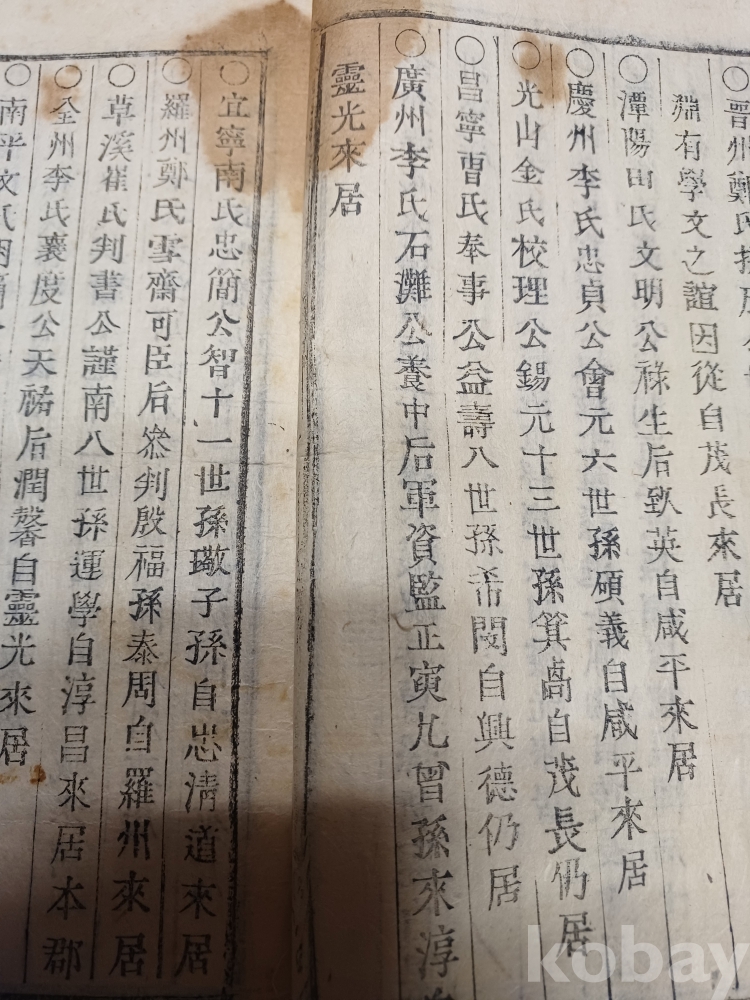 ○晋州鄭氏
有學文之誼因從自茂長來居
○潭陽田氏文明公祿生后致英自咸平來居
○慶州李氏忠貞公會元六世孫碩義自咸平來居
○光山金氏校理公錫元十三世孫箕卨自茂長仍居
○昌寧曺氏奉事公益壽八世孫希閔自興德仍居
○廣州李氏石灘公養中后軍資監正寅九曾孫來淳自
靈光來居
○宜寧南氏忠簡公智十一世孫璥子孫自忠清道來居
○羅州鄭氏雪齋可臣后叅判殷福孫泰周自羅州來居
○草溪崔氏判書公謹南八世孫運學自淳昌來居本郡
○全州李氏襄度公天祐后潤馨自靈光來居
○南平文氏
kobay